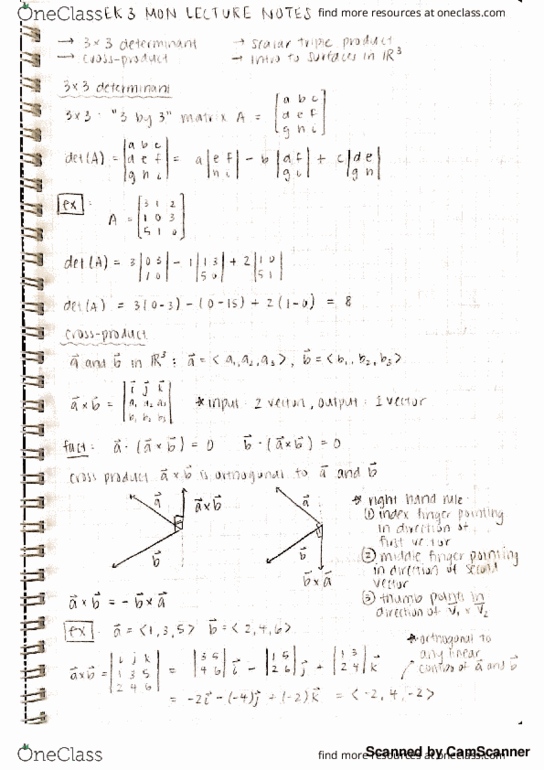 OneClass
EK 3 MON LECTURE NOTES
find more resources at oneclass.com
→ 3×3 determinant → scalar triple product
→ cross-product → intro to surfaces in ℝ³
3×3 determinant
3×3 : "3 by 3" matrix A = [a b c
d e f
g h i]
det(A) = |a b c
d e f
g h i| = a|e f
h i| - b|d f
g i| + c|d e
g h|
ex:
A = [3 1 2
1 0 3
5 1 0]
det(A) = 3|0 3
1 0| - 1|1 3
5 0| + 2|1 0
5 1|
det(A) = 3(0-3) - (0-15) + 2(1-0) = 8
cross-product
a⃗ and b⃗ in ℝ³ : a⃗ = <a₁, a₂, a₃>, b⃗ = <b₁, b₂, b₃>
a⃗ × b⃗ = |i⃗ j⃗ k⃗
a₁ a₂ a₃
b₁ b₂ b₃| * input : 2 vectors, output : 1 vector
fact: a⃗ · (a⃗ × b⃗) = 0 b⃗ · (a⃗ × b⃗) = 0
cross product a⃗ × b⃗ is orthogonal to a⃗ and b⃗
a⃗ a⃗ × b⃗
b⃗
a⃗
b⃗
b⃗ × a⃗
* right hand rule:
(1) index finger pointing
in direction of
first vector
(2) middle finger pointing
in direction of second
vector
(3) thumb points in
direction of v⃗₁ × v⃗₂
a⃗ × b⃗ = - b⃗ × a⃗
ex: a⃗ = <1,3,5> b⃗ = <2,4,6>
* orthogonal to
any linear
of a⃗ and b⃗
a⃗ × b⃗ = |i j k
1 3 5
2 4 6| = |3 5
4 6| i⃗ - |1 5
2 6| j⃗ + |1 3
2 4| k⃗
= -2i⃗ - (-4)j⃗ + (-2)k⃗ = <-2, 4, -2>
OneClass
find more resources at oneclass.com
Scanned by CamScanner